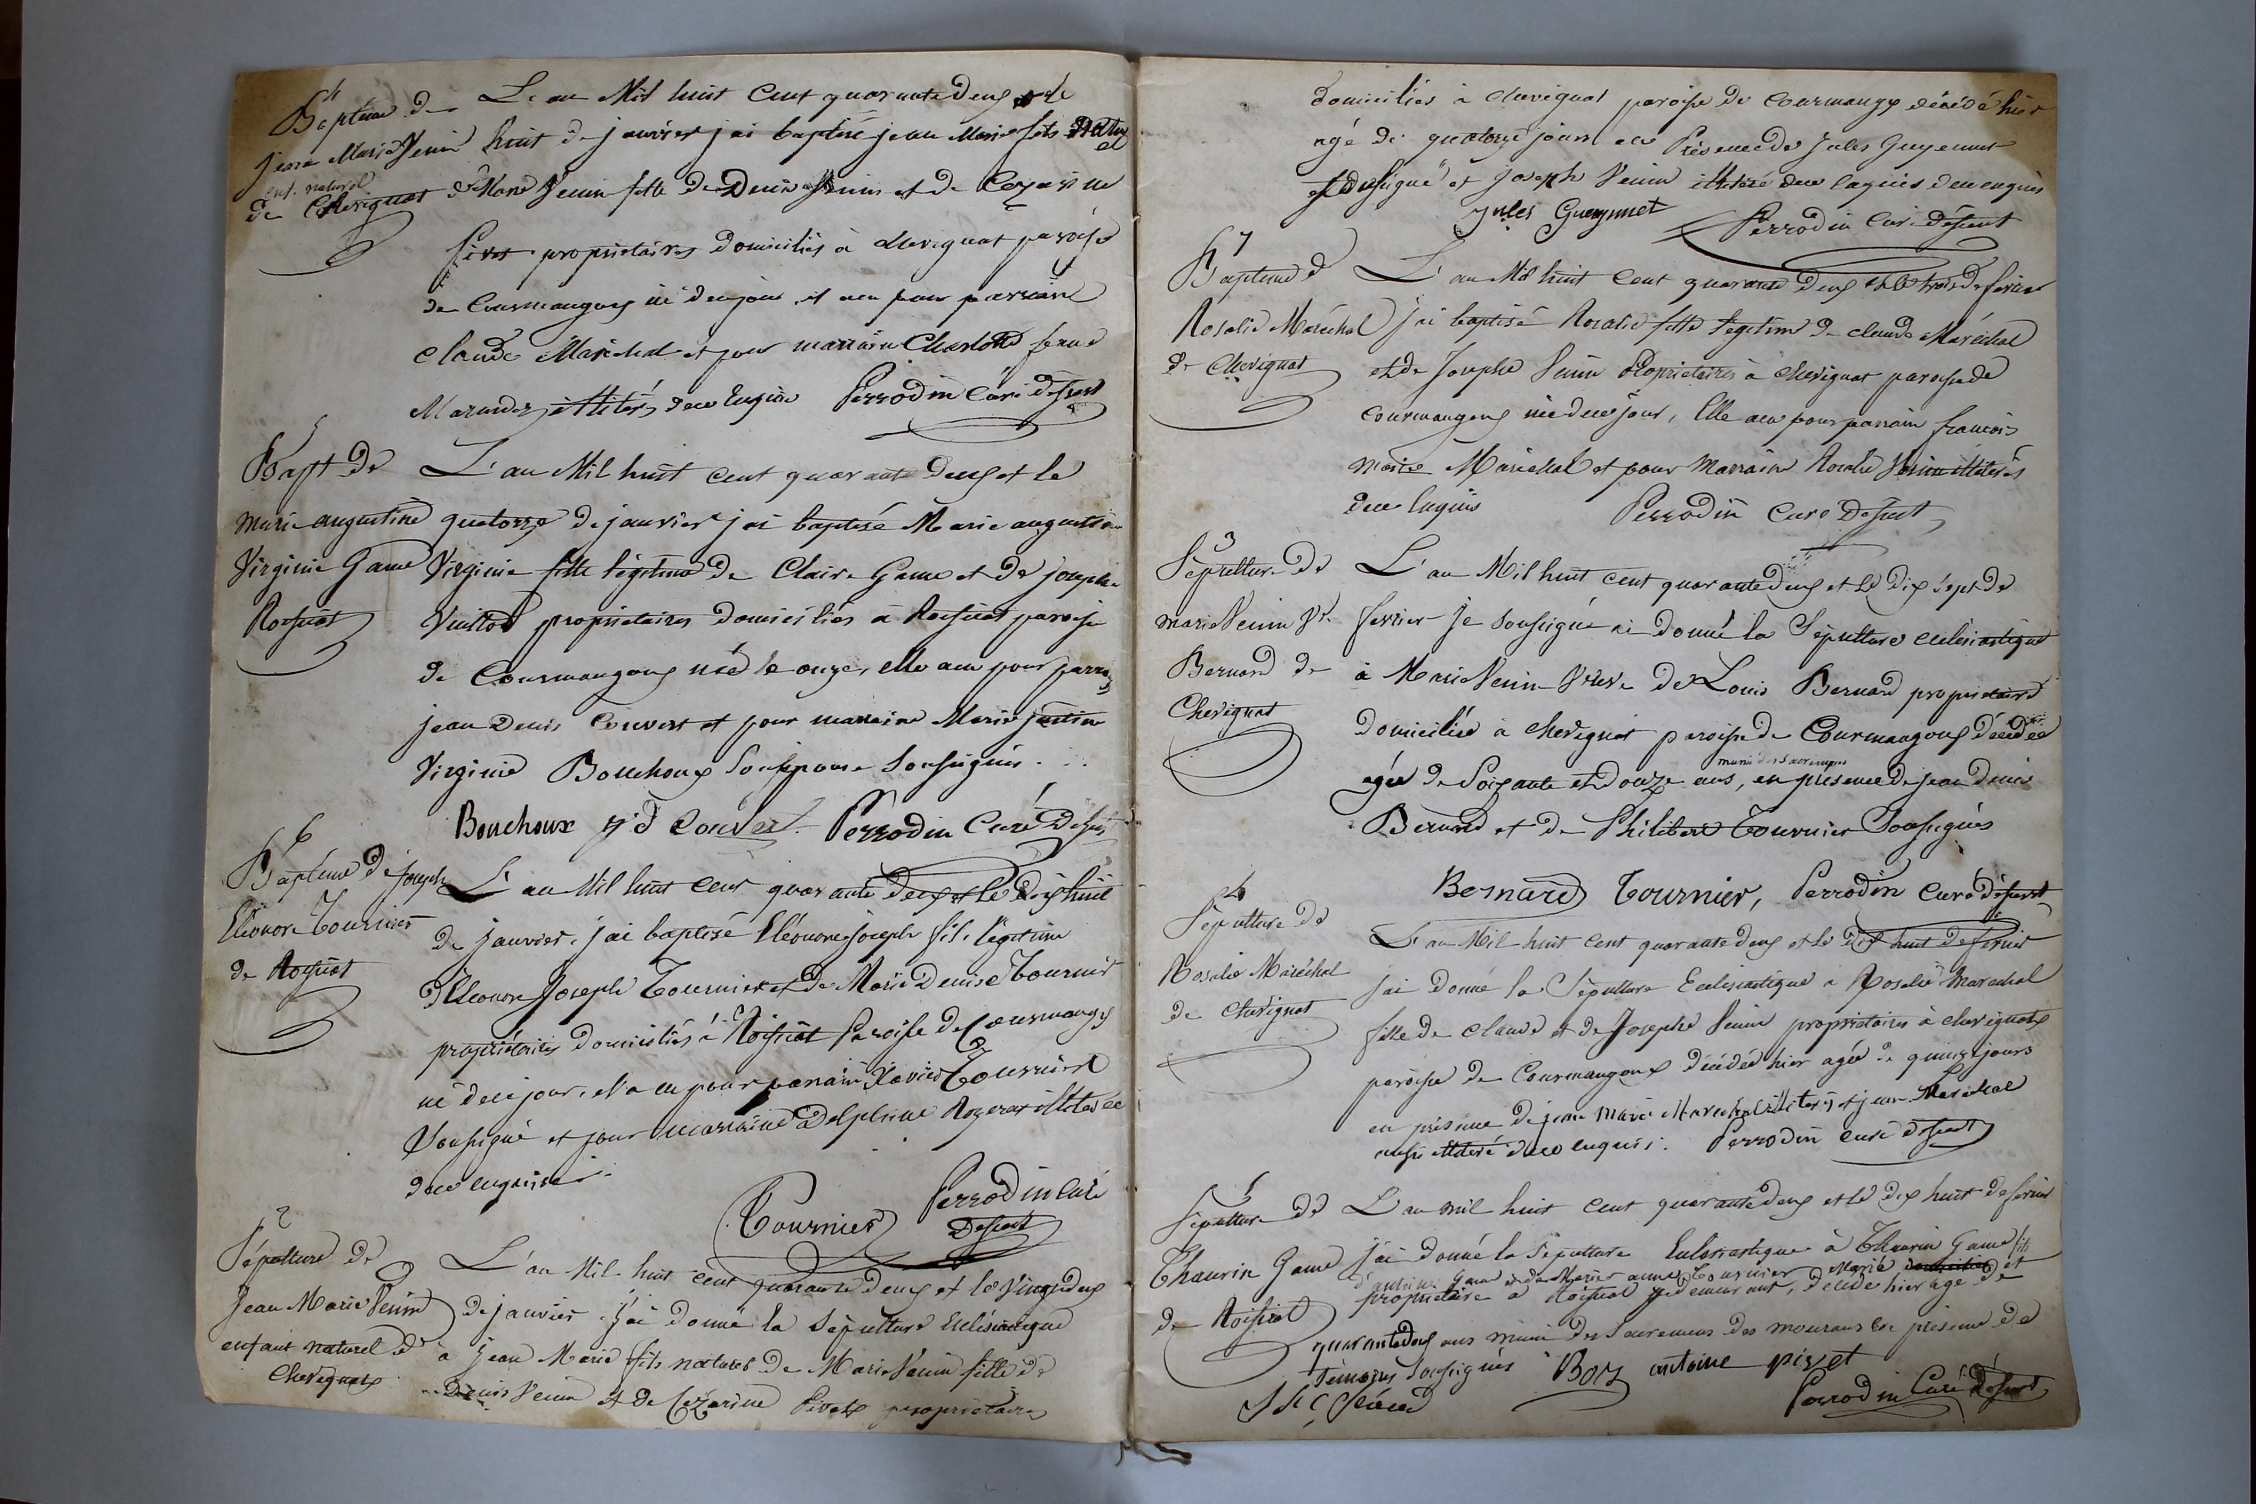 4
Baptême de
Jean Marie Venin
enf. naturel
de Chevignat
L'an Mil huit Cent quarante deux et le
huit de janvier j'ai baptisé jean Marie fils naturel
de Marie Venin fille de Denis Venin et de Cézarine
Pivet propriétaires domiciliés à chevignat paroisse
de Courmangoux né de ce jour, il a eu pour parrain
Claude Maréchal et pour marraine Charlotte femme
illitérés de ce enquis Perrodin Curé Desservt
5
Bapt de
marie augustine
Virginie Game
Roissiat
L'an Mil huit cent quarante deux et le
quatorze de janvier j'ai baptisé Marie augustine
Virginie fille légitime de Claire Game et de joseph
Vuitton propriétaires domiciliés à Roissiat paroisse
de Courmangoux née le onze, elle a eu pour parrain
jean Denis Couvert et pour marraine Marie justine
Virginie Bouchoux soussignés
Bouchoux j'd Couvert Perrodin Curé Desst
6
Baptême de joseph
Eléonore Tournier
de Roissiat
L'an Mil huit Cent quarante deux et le dix huit
de janvier, j'ai baptisé Eléonore joseph fils légitime
d'Eléonore Joseph Tournier et de Marie Denise Tournier
propriétaires domiciliés à Roissiat Paroisse de Courmangoux
né de ce jour, il a eu pour parrain Xavier Tournier
Soussigné et pour marraine Delphine Rozerat illitérée
de ce enquise
Tournier Perrodin Curé
Desservt
2
Sépulture de
Jean Marie Venin
enfant naturel de
Chevignat
L'an Mil huit cent quarante deux et le vingt deux
de janvier j'ai donné la sépulture Eclésiastique
à Jean Marie fils naturel de Marie Venin fille de
Denis Venin et de Cézarine Pivet propriétaires
domiciliés à chevignat paroisse de Courmangoux décédé hier
agé de quatorze jours en Présence de Jules Gueynnet
soussigné et joseph Venin illitéré de ce enquis
Jules Gueynnet Perrodin Curé Desservt
7
Baptême de
Rosalie Maréchal
de Chevignat
L'an Mil huit Cent quarante deux et le trois de février
j'ai baptisé Rosalie fille légitime de claude Maréchal
et de Josephe Venin Propriétaires à Chevignat paroisse de
Courmangoux née de ce jour, Elle a eu pour parrain francois
marie Maréchal et pour Marraine Rosalie Venin illitérés
de ce enquis Perrodin Curé Desservt
3
Sépulture de
marie Venin Ve
Bernard de
Chevignat
L'an Mil huit cent quarante deux et le dix sept de
fevrier je soussigné ai donné la Sépulture eclésiastique
à Marie Venin Veuve de Louis Bernard propriétaire
domiciliée à chevignat paroisse de Courmangoux décédée
munie des sacremens
agée de Soixante et douze ans, en présence de jean denis
Bernard et de Philibert Tournier Soussignés
Bernard Tournier, Perrodin Curé desservt
4
Sépulture de
Rosalie Maréchal
de Chevignat
L'an Mil huit Cent quarante deux et le dix huit de fevrier
j'ai donné la Sépulture Eclésiastique à Rosalie Marechal
fille de claude et de Josephe Venin propriétaires à chevignat
paroisse de Courmangoux décédée hier agée de quinze jours
en présence de jean Marie Marechal illitéré et jean Maréchal
aussi illitéré de ce enquis. Perrodin curé desservt
5
Sépulture de
Thaurin Game
de Roissiat
L'an mil huit cent quarante deux et le dix huit de fevrier
j'ai donné la Sépulture Eclésiastique à Thaurin Game fils
d'antoine Game et de Marie anne Tournier Marié et
propriétaire à Roissiat y demeurant, décédé hier agé de
quarante deux ans muni des Sacremens des mourans en présence de
témoins soussignés Boz antoine pivet
Perrodin Curé Desservt